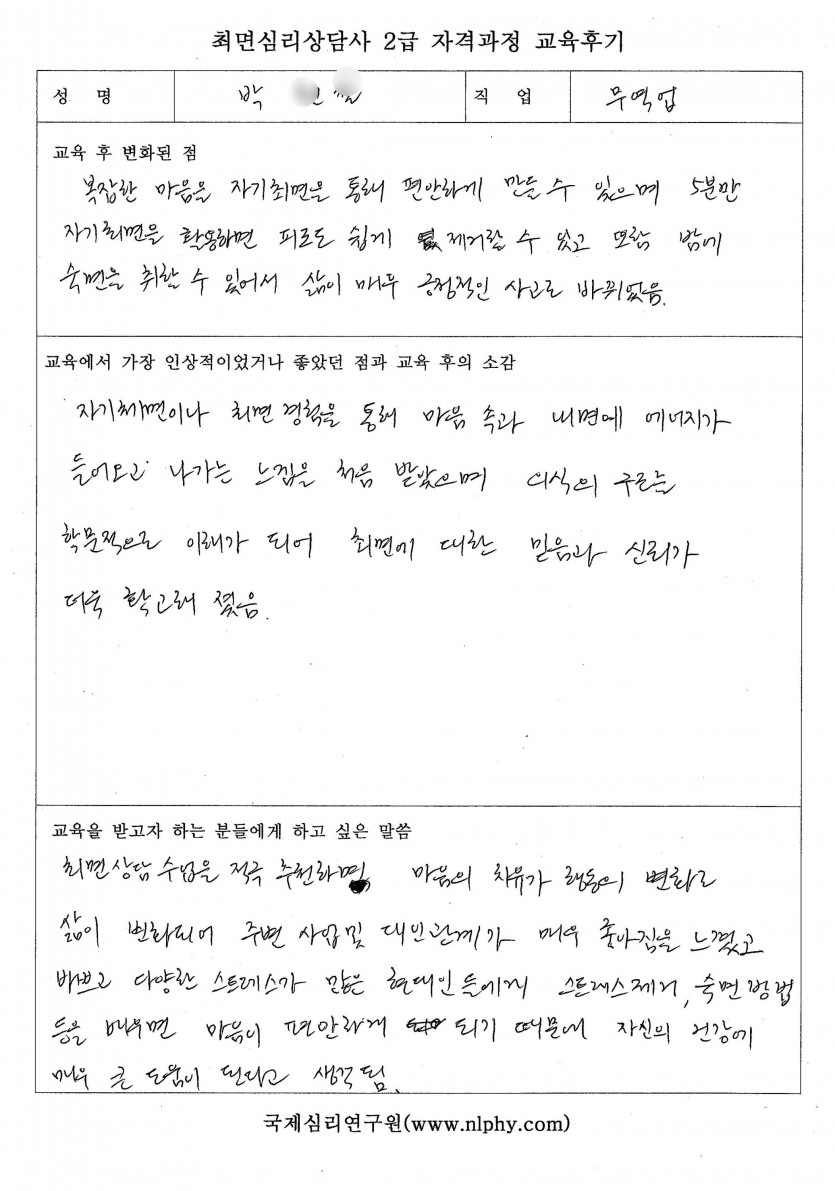 최면심리상담사 2급 자격과정 교육후기
성 명 박 직 업 무역업
교육 후 변화된 점
복잡한 마음을 자기최면을 통해 편안하게 만들 수 있으며 5분만
자기최면을 활용하면 피로도 쉽게 제거할 수 있고 또한 밤에
숙면을 취할 수 있어서 삶이 매우 긍정적인 사고로 바뀌었음.
교육에서 가장 인상적이었거나 좋았던 점과 교육 후의 소감
자기최면이나 최면경험을 통해 마음 속과 내면에 에너지가
들어오고 나가는 느낌을 처음 받았으며 의식의 구조는
학문적으로 이해가 되어 최면에 대한 믿음과 신뢰가
더욱 확고해 졌음.
교육을 받고자 하는 분들에게 하고 싶은 말씀
최면상담 수업을 적극 추천하며 마음의 치유가 행동의 변화로
삶이 변화되어 주변 사업및 대인관계가 매우 좋아짐을 느꼈고
바쁘고 다양한 스트레스가 많은 현대인들에게 스트레스제거, 숙면방법
등을 배우면 마음이 편안하게 되기 때문에 자신의 건강에
매우 큰 도움이 된다고 생각됨.
국제심리연구원(www.nlphy.com)